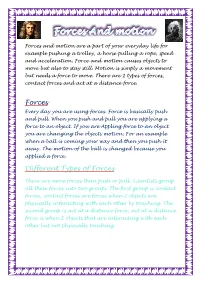 Forces And motion
Forces and motion are a part of your everyday life for
example pushing a trolley, a horse pulling a rope, speed
and acceleration. Force and motion causes objects to
move but also to stay still. Motion is simply a movement
but needs a force to move. There are 2 types of forces,
contact forces and act at a distance force.
Forces
Every day you are using forces. Force is basically push
and pull. When you push and pull you are applying a
force to an object. If you are Appling force to an object
you are changing the objects motion. For an example
when a ball is coming your way and then you push it
away. The motion of the ball is changed because you
applied a force.
Different Types of Forces
There are more forces than push or pull. Scientists group
all these forces into two groups. The first group is contact
forces, contact forces are forces when 2 objects are
physically interacting with each other by touching. The
second group is act at a distance force, act at a distance
force is when 2 objects that are interacting with each
other but not physically touching.